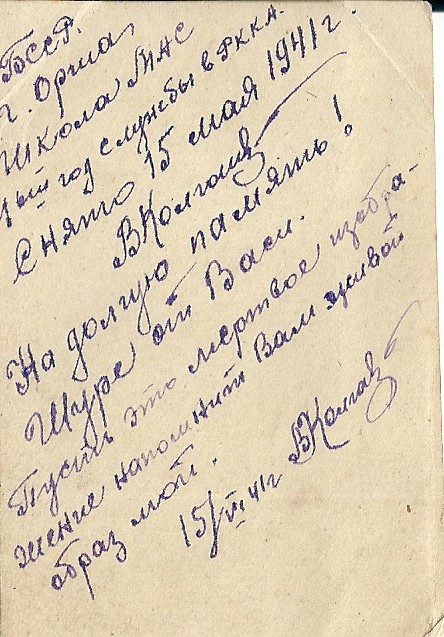 БССР.
г. Орша,
Школа МАС
1ый год службы в РККА.
Снято 15 мая 1941 г.
ВКолгашев
На долгую память!
Шуре от Васи.
Пусть это мертвое изобра-
жение напомнит Вам живой
образ мой.
15/VI 41г